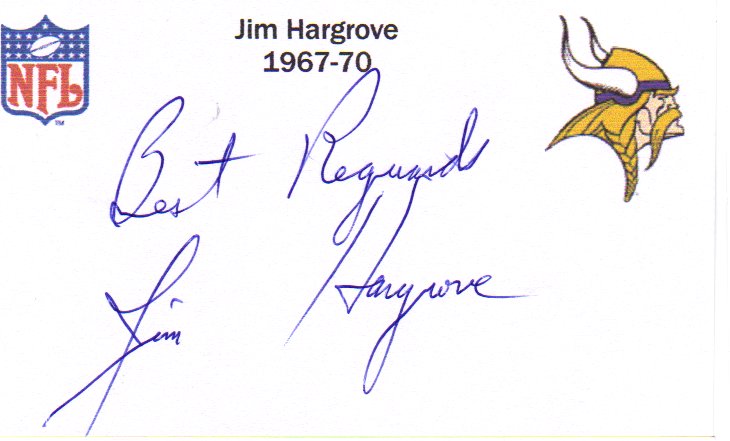 NFL
TM
Jim Hargrove
1967-70
Best Reguards
Jim Hargrove